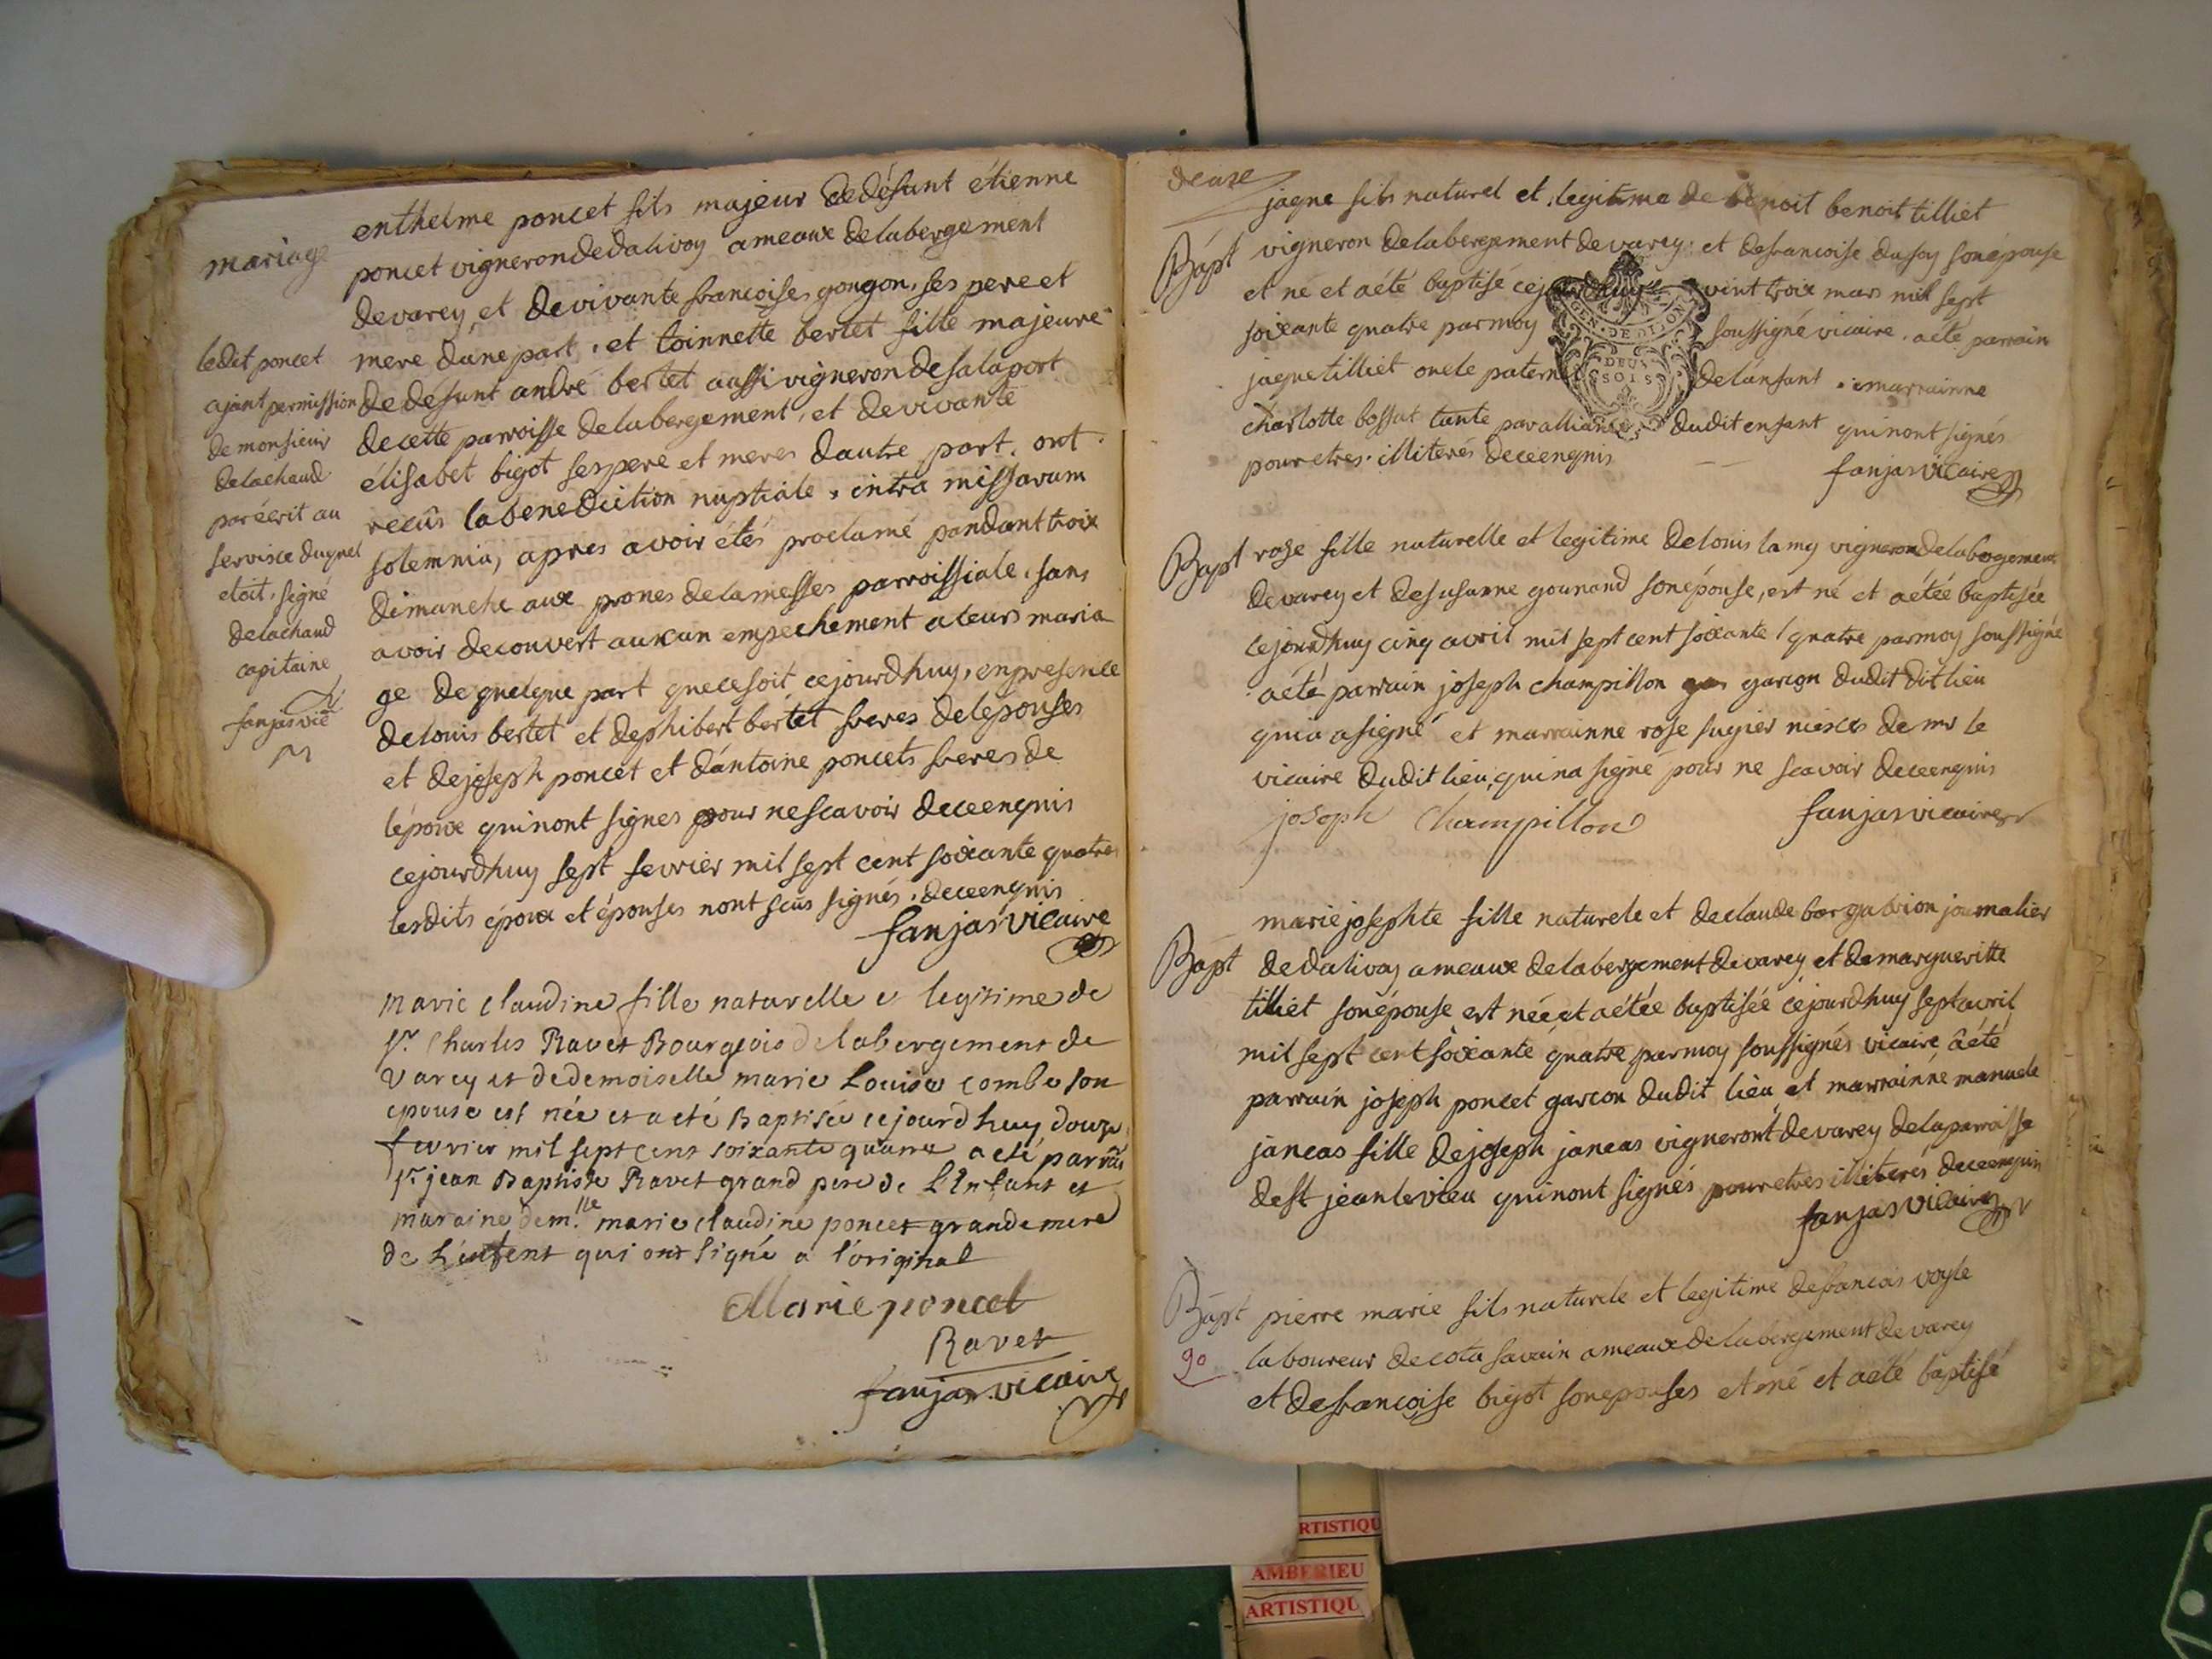 mariage
enthelme poncet fils majeur de défunt étienne
poncet vigneron de dalivoy ameaux de labergement
de varey, et de vivante francoises gongon, ses pere et
mere dune part, et toinnette bertet fille majeure
de défunt andré bertet aussi vigneron de salaport
de cette parroisse de labergement, et de vivante
élisabet bigot ses pere et meres dautre part, ont
recûs la benediction nuptiale, intra missarum
solemnia, apres avoir étés proclamé pandant troix
dimanche aux prones de la messes parroissiale, sans
avoir decouvert auxcun empechement a leurs maria
ge de quelque part que ce soit cejourdhuy, en presence
de louis bertet et de phibert bertet freres de lépouses
et de joseph poncet et dántoine poncets freres de
lépoux qui nont signes pour ne scavoir de ce enquis
cejourdhuy sept fevrier mil sept cent soixante quatre
lesdits époux et épouses nont scûs signés. de ce enquis
fanjas vicaire
ledit poncet
ajant permission
de monsieur
delachaud
par écrit au
service duquel
etoit, signé
delachaud
capitaine
fanjas vic
marie claudine fille naturelle et legitime de
Sr Charles Ravet Bourgeois de labergement de
Varey et de demoiselle marie Louise combe son
epouse est née et a eté Baptisée cejourdhuy douze
fevrier mil sept cent soixante quatre a eté parrain
Sr jean Baptiste Ravet grand pere de L'Enfant et
maraine demlle marie claudine poncet grande mere
de L'enfent qui ont signé a l'original
Marie poncet
Ravet
fanjas vicaire
Bapt
jaque fils naturel et legitime de benoit benoit tilliet
vigneron de labergement de varey et de francoise dufoy son épouse
et né et a été baptisé cejourdhuy vint troix mars mil sept
soixante quatre par moy soussigné vicaire. a été parrain
jaque tilliet oncle paternel de lánfant, marrainne
charlotte bossut tante par alliance dudit enfant qui nont signés
pour etres illiterés de ce enquis
fanjas vicaire
GEN. DE DIJON
DEUX
SOLS
Bapt
rose fille naturelle et legitime de louis lamy vigneron de labergement
de varey et de susanne gounand son épouse, est né et a étéé baptisée
cejourdhuy cinq avril mil sept cent soixante quatre par moy soussigné
a été parrain joseph champillon garcon dudit dit lieu
qui a signé et marrainne rose fugier nieces de mr le
vicaire dudit lieu, qui na signé pour ne scavoir de ce enquis
joseph Champillon
fanjas vicaire
Bapt
marie josephte fille naturele et de claude bargabrion journalier
de dalivoy ameaux de labergement de varey et de margueritte
tilliet son épouse est née et a étée baptisée cejourdhuy sept avril
mil sept cent soixante quatre par moy soussignés vicaire, a été
parrain joseph poncet garcon dudit lieu et marrainne manuele
janeas fille de joseph janeas vigneront de varey de la parroisse
de st jean le vieu qui nont signés pour etres illiterés de ce enquis
fanjas vicaire
Bapt
90
pierre marie fils naturele et legitime de francois voyle
laboureur de cota savain ameaux de labergement de varey
et de francoise bigot son epouses et né et a été baptisé
RTISTIQU
AMBERIEU
ARTISTIQU